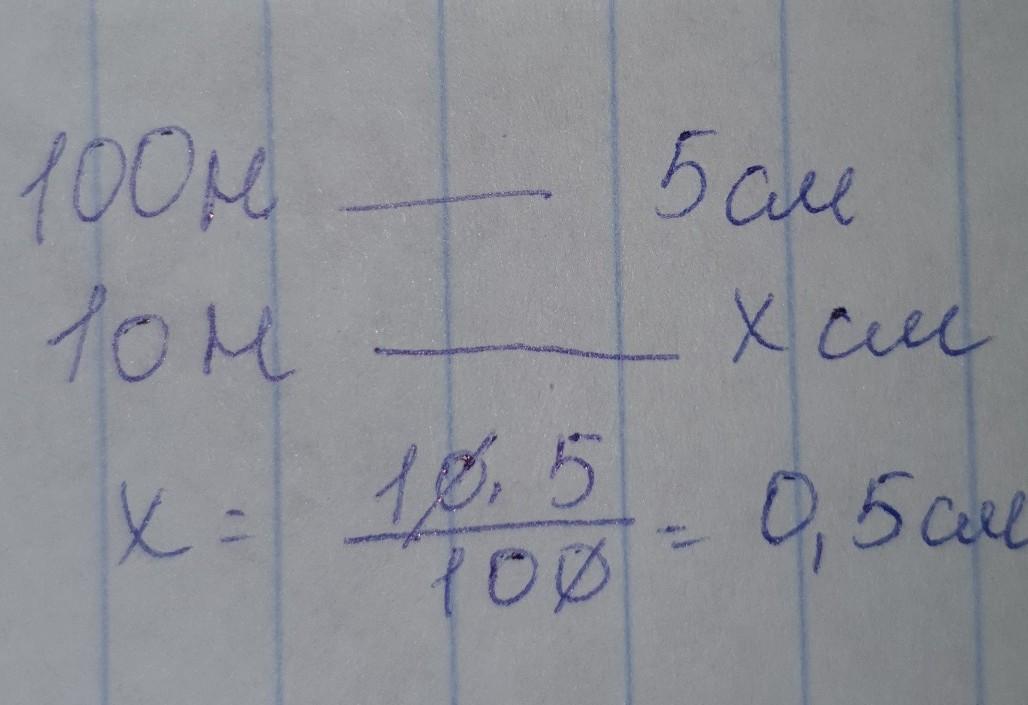 100н — 5см
10н — x см
x = 10 · 5 / 100 = 0,5см